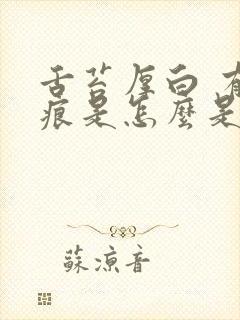 舌苔厚白 有
痕是怎麼是
蘇涼音